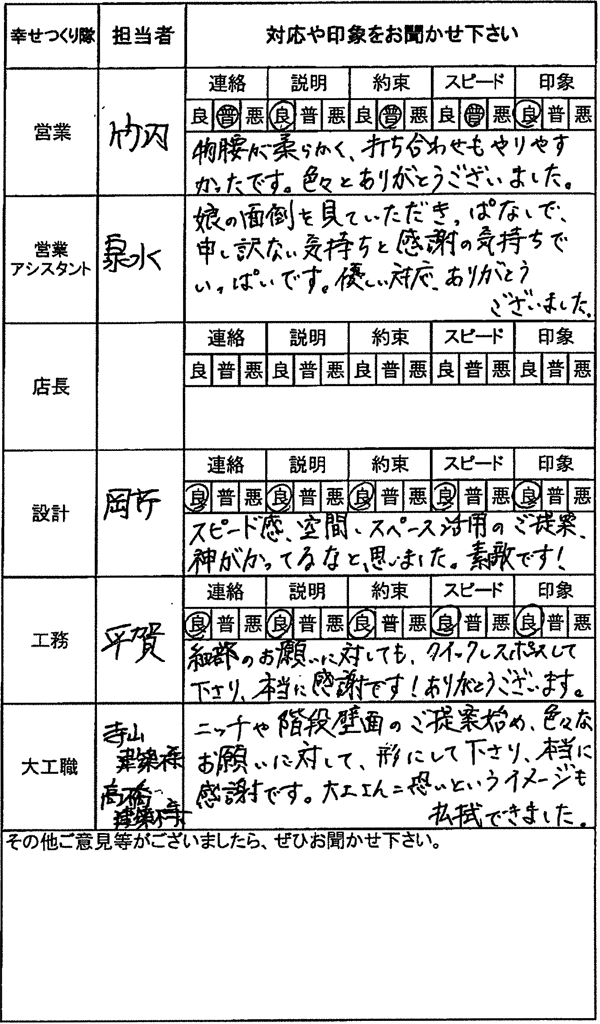 幸せつくり隊 担当者 対応や印象をお聞かせ下さい
営業 竹内
連絡 説明 約束 スピード 印象
良 普 悪 良 普 悪 良 普 悪 良 普 悪 良 普 悪
物腰が柔らかく、打ち合わせもやりやす
かったです。色々とありがとうございました。
営業
アシスタント 泉水
娘の面倒を見ていただきっぱなしで、
申し訳ない気持ちと感謝の気持ちで
いっぱいです。優しい対応、ありがとう
ございました。
店長
連絡 説明 約束 スピード 印象
良 普 悪 良 普 悪 良 普 悪 良 普 悪 良 普 悪
設計 岡庁
連絡 説明 約束 スピード 印象
良 普 悪 良 普 悪 良 普 悪 良 普 悪 良 普 悪
スピード感、空間、スペース活用のご提案、
神がかってるなと思いました。素敵です!
工務 平賀
連絡 説明 約束 スピード 印象
良 普 悪 良 普 悪 良 普 悪 良 普 悪 良 普 悪
細部のお願いに対しても、クイックレスポンスして
下さり、本当に感謝です!ありがとうございます。
大工職
寺山
建築様
高橋
建築様
ニッチや階段壁面のご提案始め、色々な
お願いに対して、形にして下さり、本当に
感謝です。大工さん=恐いというイメージも
払拭できました。
その他ご意見等がございましたら、ぜひお聞かせ下さい。